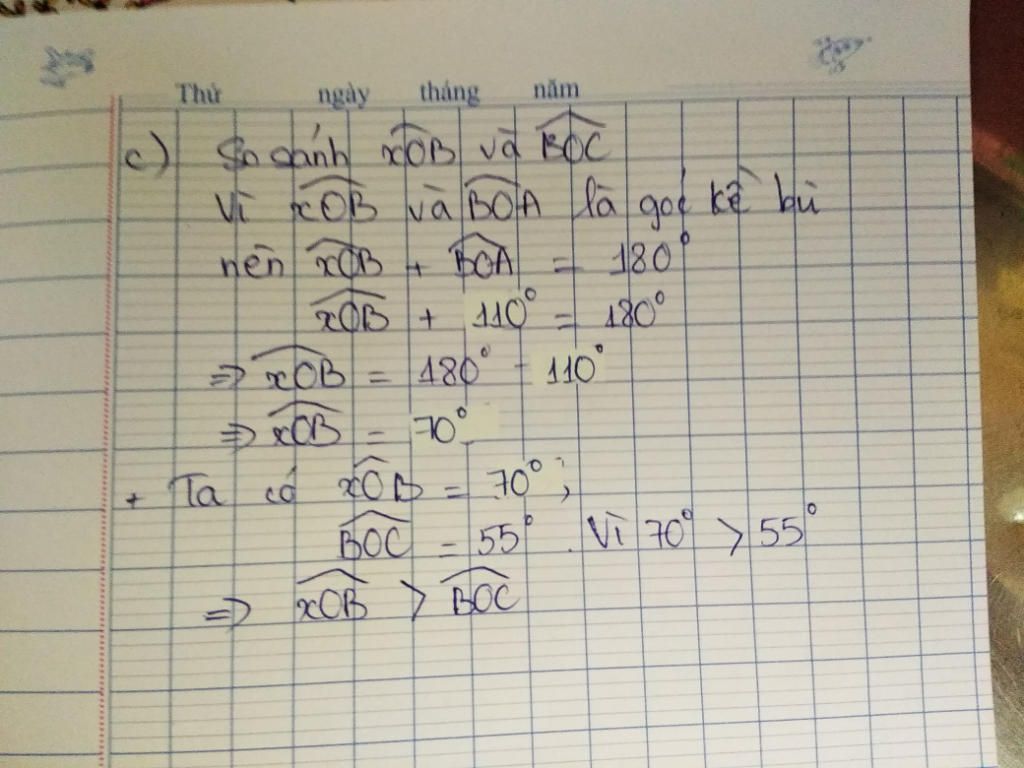 Thứ ngày tháng năm
c) So sánh xOB và BOC
Vì xOB và BOA là góc kề bù
nên xOB + BOA = 180°
xOB + 110° = 180°
⇒ xOB = 180° - 110°
⇒ xOB = 70°
+ Ta có xOB = 70° ;
BOC = 55° . Vì 70° > 55°
⇒ xOB > BOC